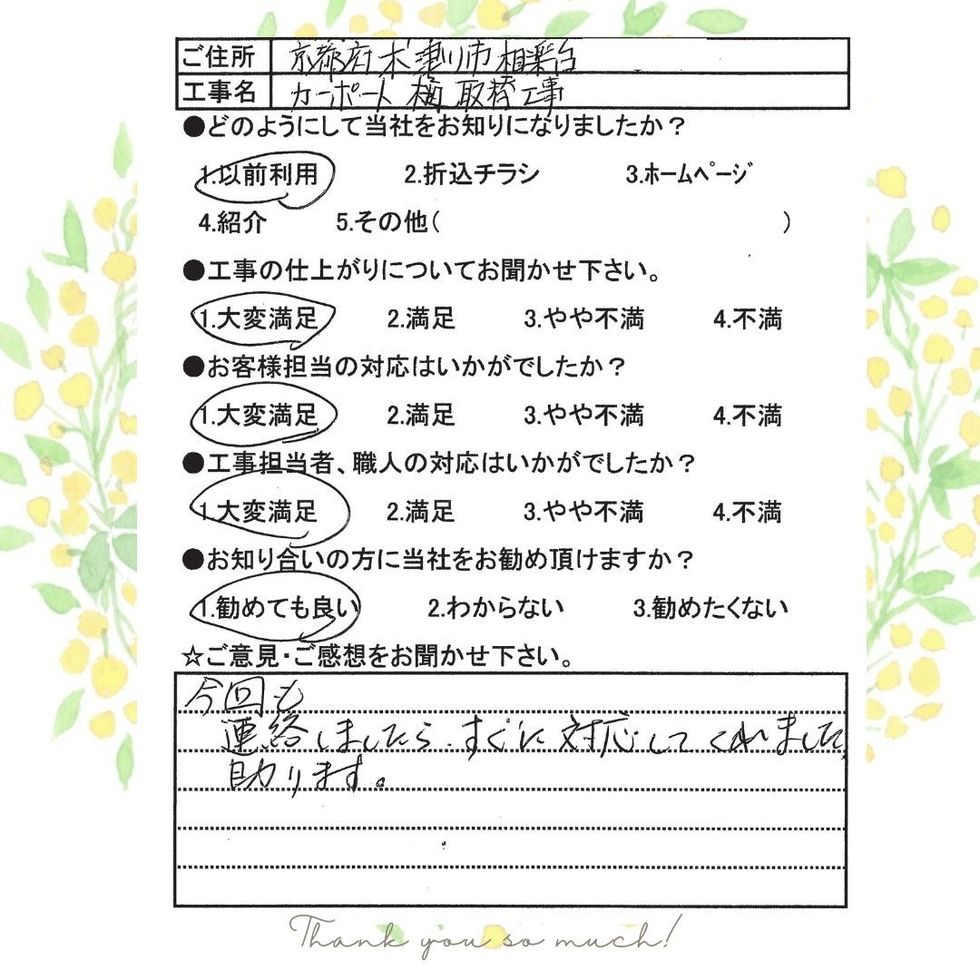 ご住所 京都府木津川市相楽台
工事名 カーポート樋取替工事
●どのようにして当社をお知りになりましたか？
1.以前利用 2.折込チラシ 3.ホームページ
4.紹介 5.その他( )
●工事の仕上がりについてお聞かせ下さい。
1.大変満足 2.満足 3.やや不満 4.不満
●お客様担当の対応はいかがでしたか？
1.大変満足 2.満足 3.やや不満 4.不満
●工事担当者、職人の対応はいかがでしたか？
1.大変満足 2.満足 3.やや不満 4.不満
●お知り合いの方に当社をお勧め頂けますか？
1.勧めても良い 2.わからない 3.勧めたくない
☆ご意見・ご感想をお聞かせ下さい。
今回も
連絡しましたら、すぐに対応してくれました。
助ります。
Thank you so much!